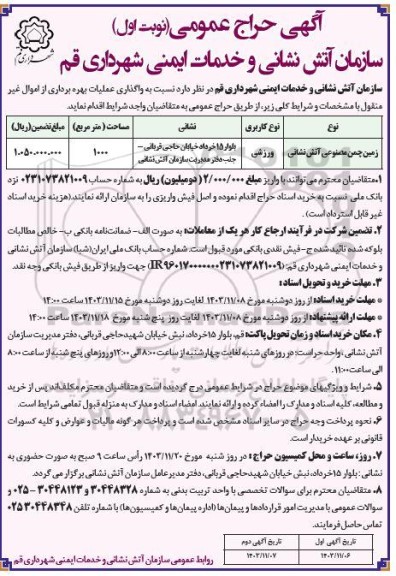 آگهی حراج عمومی (نوبت اول)
سازمان آتش نشانی و خدمات ایمنی شهرداری قم
شهرداری قم
سازمان آتش نشانی و خدمات ایمنی شهرداری قم در نظر دارد نسبت به واگذاری عملیات بهره برداری از اموال غیر
منقول با مشخصات و شرایط کلی زیر، از طریق حراج عمومی به متقاضیان واجد شرایط اقدام نماید.
نوع | نوع کاربری | نشانی | مساحت (متر مربع) | مبلغ تضمین (ریال)
زمین چمن مصنوعی آتش نشانی | ورزشی | بلوار ۱۵ خرداد خیابان حاجی قربانی - | ۱۰۰۰ | ۱.۰۵۰.۰۰۰.۰۰۰
جنب دفتر مدیریت سازمان آتش نشانی
۱. متقاضیان محترم می توانند با واریز مبلغ ۲/۰۰۰/۰۰۰ (دو میلیون) ریال به شماره حساب ۰۲۳۱۰۷۳۸۲۱۰۰۹ نزد
بانک ملی نسبت به خرید اسناد حراج اقدام نموده و اصل فیش واریزی را به سازمان ارائه نمایند. (هزینه خرید اسناد
غیر قابل استرداد است).
۲. تضمین شرکت در فرآیند ارجاع کار هر یک از معاملات: به صورت الف- ضمانت نامه بانکی ب- خالص مطالبات
بلوکه شده تائید شده ج- فیش نقدی بانکی مورد قبول است. شماره حساب بانک ملی ایران (شبا) سازمان آتش نشانی
و خدمات ایمنی شهرداری قم: جهت واریز از طریق فیش بانکی وجه نقد.
۳. مهلت خرید و تحویل اسناد:
* مهلت خرید اسناد: از روز دوشنبه مورخ ۱۴۰۳/۱۱/۰۸ لغایت روز دوشنبه مورخ ۱۴۰۳/۱۱/۱۵ تا ساعت ۱۴:۰۰
* مهلت ارائه پیشنهاد: از روز دوشنبه مورخ ۱۴۰۳/۱۱/۰۸ لغایت روز پنج شنبه مورخ ۱۴۰۳/۱۱/۱۸ تا ساعت ۱۴:۰۰
۴. مکان خرید اسناد و زمان تحویل پاکت: قم، بلوار ۱۵ خرداد، نبش خیابان شهید حاجی قربانی، دفتر مدیریت سازمان
آتش نشانی، واحد حراست: در روزهای شنبه لغایت چهارشنبه از ساعت ۸:۰۰ الی ۱۴:۰۰ و روزهای پنج شنبه از ساعت ۸:۰۰
الی ساعت ۱۱:۰۰.
۵. شرایط و ویژگیهای موضوع حراج در شرایط عمومی درج گردیده است و متقاضیان محترم مکلف اند پس از خرید
و مطالعه، کلیه اسناد و مدارک را امضاء کرده و ارائه نمایند. امضاء اسناد و مدارک به منزله قبول تمامی شرایط است.
۶. نحوه پرداخت وجه حراج در سایر اسناد مشخص شده است و پرداخت هر گونه مالیات و عوارض و کلیه کسورات
قانونی بر عهده خریدار است.
۷. روز، ساعت و محل کمیسیون حراج: در روز شنبه مورخ ۱۴۰۳/۱۱/۲۰ رأس ساعت ۹ صبح به صورت حضوری به
نشانی: بلوار ۱۵ خرداد، نبش خیابان شهید حاجی قربانی، دفتر مدیرعامل سازمان آتش نشانی برگزار می گردد.
۸. متقاضیان محترم برای سوالات تخصصی با واحد تربیت بدنی به شماره ۳۰۴۴۸۳۲۸ و ۳۰۴۴۸۱۲۳ - ۰۲۵
و سوالات عمومی با مدیریت امور قراردادها و پیمان ها (اداره پیمان ها و کمیسیون ها) با شماره تلفن ۰۲۵۳۰۴۴۸۳۴۸
تماس حاصل فرمایند.
تاریخ آگهی اول | تاریخ آگهی دوم
۱۴۰۳/۱۱/۰۶ | ۱۴۰۳/۱۱/۰۷
روابط عمومی سازمان آتش نشانی و خدمات ایمنی شهرداری قم